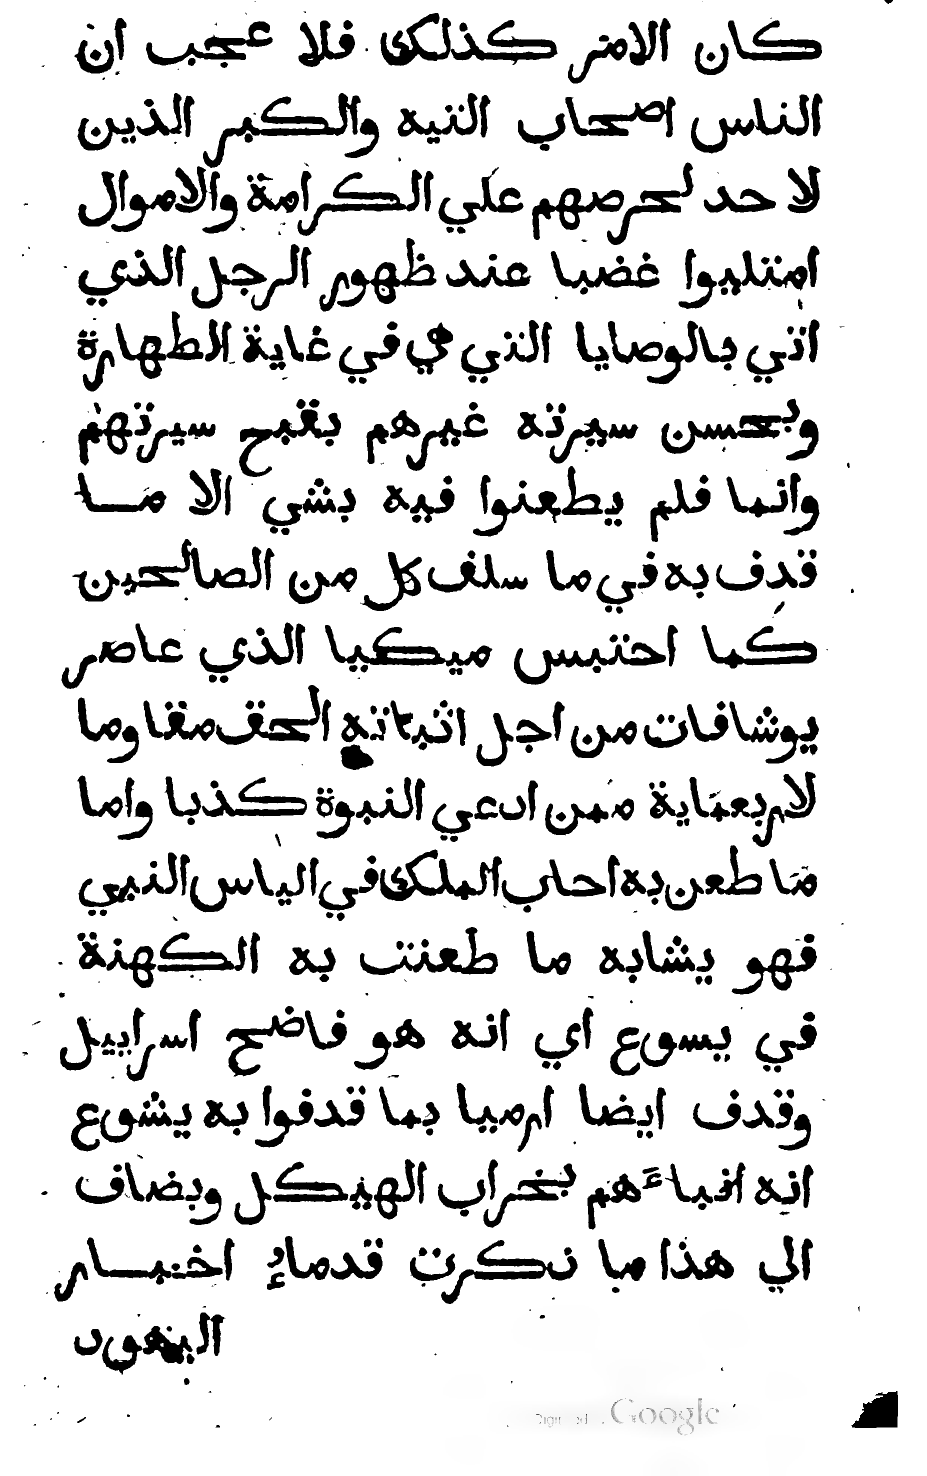 كان الامر كذلك فلا عجب ان
الناس اصحاب التيه والكبر الذين
لا حد لحرصهم علي الكرامة والاموال
امتليوا غضبا عند ظهور الرجل الذي
اتي بالوصايا التي هي في غاية الطهارة
وبحسن سيرته غيرهم بقبح سيرتهم
وانما فلم يطعنوا فيه بشي الا ما
قدف به في ما سلف كل من الصالحين
كما احتبس ميكيا الذي عاصر
يوشافات من اجل اثباته الحق مقاوما
لاربعماية ممن ادعي النبوة كذبا واما
ما طعن به احاب الملك في الياس النبي
فهو يشابه ما طعنت به الكهنة
في يسوع اي انه هو فاضح اسراييل
وقدف ايضا ارميا بما قدفوا به يشوع
انه انباءهم بخراب الهيكل ويضاف
الي هذا ما ذكرت قدماء اخبار
اليهود
Google